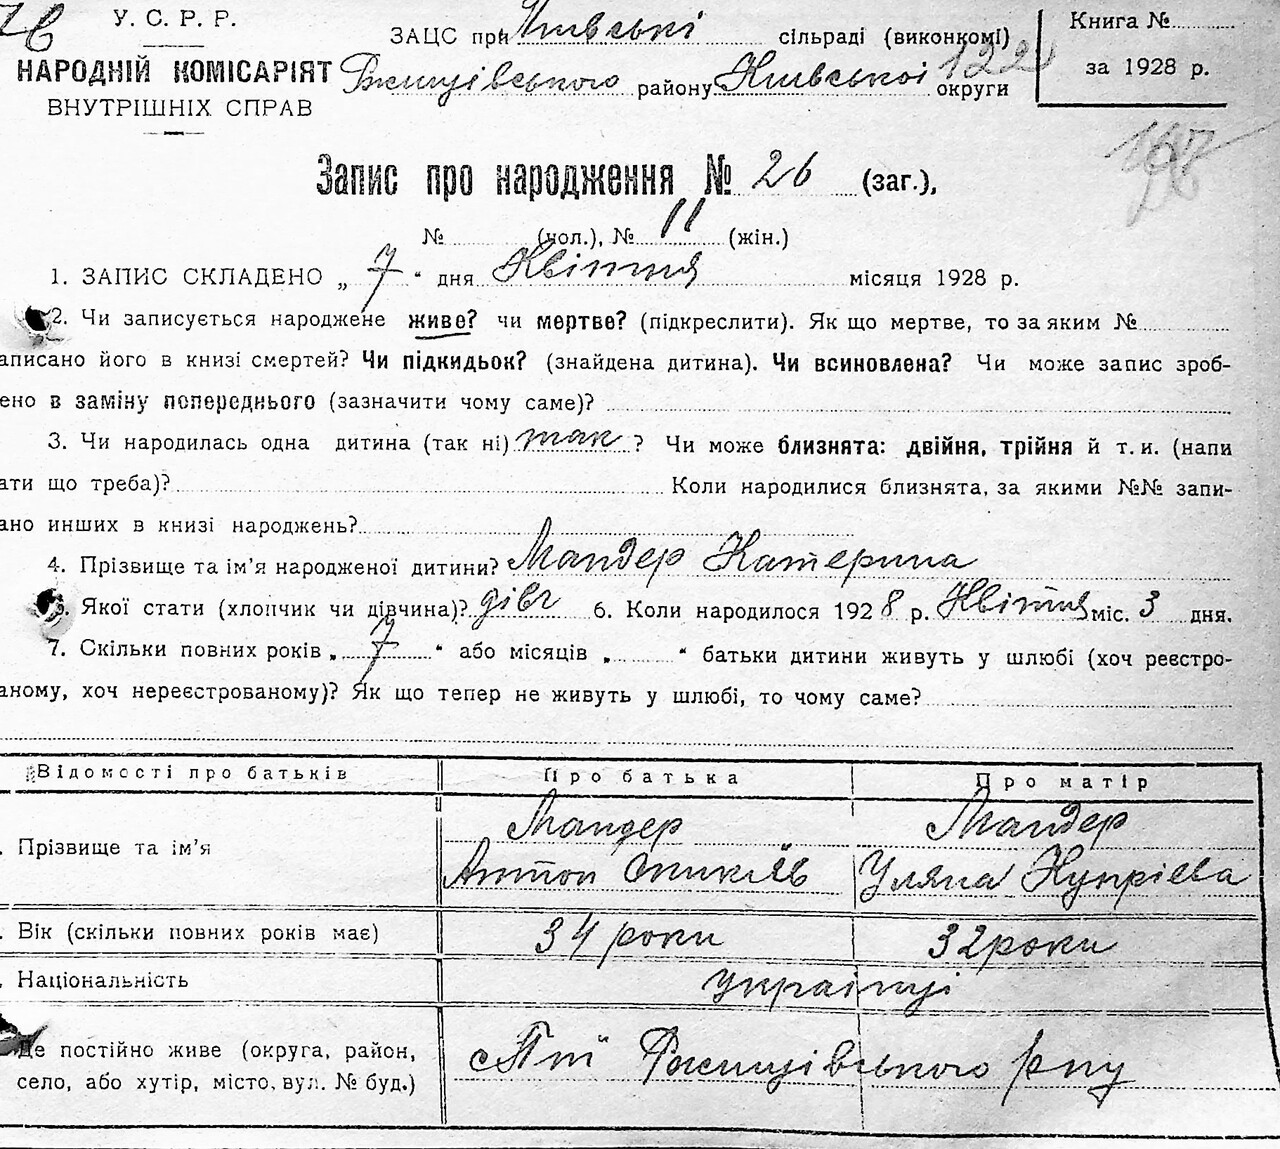 У. С. Р. Р.
НАРОДНІЙ КОМІСАРІЯТ
ВНУТРІШНІХ СПРАВ
ЗАЦС при сільраді (виконкомі)
Ржищівського району Київської округи
122
Книга №
за 1928 р.
Запис про народження № 26 (заг.),
№ (чол.), № 11 (жін.)
1. ЗАПИС СКЛАДЕНО „ 7 “ дня Квітня місяця 1928 р.
2. Чи записується народжене живе? чи мертве? (підкреслити). Як що мертве, то за яким №
аписано його в книзі смертей? Чи підкидьок? (знайдена дитина). Чи всиновлена? Чи може запис зроб-
ено в заміну попереднього (зазначити чому саме)?
3. Чи народилась одна дитина (так ні) так ? Чи може близнята: двійня, трійня й т. и. (напи
ати що треба)? Коли народилися близнята, за якими №№ запи-
ано инших в книзі народжень?
4. Прізвище та ім'я народженої дитини? Мандер Катерина
Якої стати (хлопчик чи дівчина)? дівч 6. Коли народилося 1928 р. Квітня міс. 3 дня.
7. Скільки повних років „ 7 “ або місяців „ “ батьки дитини живуть у шлюбі (хоч реєстро-
аному, хоч нереєстрованому)? Як що тепер не живуть у шлюбі, то чому саме?
Відомості про батьків Про батька Про матір
Прізвище та ім'я Мандер Мандер
Антон Уляна Купріева
Вік (скільки повних років має) 34 роки 32 роки
Національність українці
Де постійно живе (округа, район, Ржищівського р-ну
село, або хутір, місто, вул. № буд.)